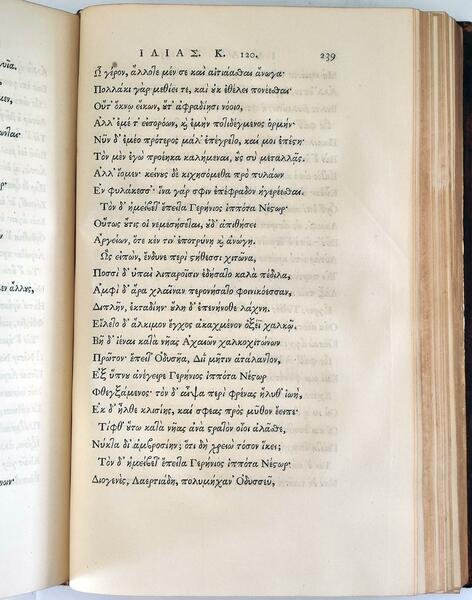 ΙΛΙΑΣ. Κ. 120. 239
Ω γέρον, ἄλλοτε μέν σε καὶ αἰτιάασθαι ἄνωγα·
Πολλάκι γὰρ μεθίει τε, καὶ οὐκ ἐθέλει πονέεσθαι·
Οὔτ' ὄκνῳ εἴκων, οὔτ' ἀφραδίῃσι νόοιο,
Ἀλλ' ἐμέ τ' εἰσορόων, καὶ ἐμὴν ποτιδέγμενος ὁρμήν·
Νῦν δ' ἐμέο πρότερος μάλ' ἐπέγρετο, καί μοι ἐπέστη·
Τὸν μὲν ἐγὼ προέηκα καλήμεναι, οὓς σὺ μεταλλᾷς.
Ἀλλ' ἴομεν· κείνους δὲ κιχησόμεθα πρὸ πυλάων
Εν φυλάκεσσ'· ἵνα γάρ σφιν ἐπέφραδον ἠγερέεσθαι.
Τὸν δ' ἠμείβετ' ἔπειτα Γερήνιος ἱππότα Νέστωρ·
Οὕτως οὔτις οἱ νεμεσήσεται, οὐδ' ἀπιθήσει
Ἀργείων, ὅτε κέν τιν' ἐποτρύνῃ καὶ ἀνώγῃ.
Ὣς εἰπὼν, ἔνδυνε περὶ στήθεσσι χιτῶνα,
Ποσσὶ δ' ὑπαὶ λιπαροῖσιν ἐδήσατο καλὰ πέδιλα,
Αμφὶ δ' ἄρα χλαῖναν περονήσατο φοινικόεσσαν,
Διπλῆν, ἐκταδίην· οὔλη δ' ἐπενήνοθε λάχνη.
Εἵλετο δ' ἄλκιμον ἔγχος ἀκαχμένον ὀξέϊ χαλκῷ.
Βῆ δ' ἰέναι κατὰ νῆας Αχαιῶν χαλκοχιτώνων
Πρῶτον· ἔπειτ' Οδυσῆα, Διῒ μῆτιν ἀτάλαντον,
Εξ ὕπνου ἀνέγειρε Γερήνιος ἱππότα Νέστωρ
Φθεγξάμενος· τὸν δ' αἶψα περὶ φρένας ἤλυθ' ἰωή,
Εκ δ' ἦλθε κλισίης, καί σφεας πρὸς μῦθον ἔειπε·
Τίφθ' οὕτω κατὰ νῆας ἀνὰ στρατὸν οἶοι ἀλᾶσθε,
Νύκτα δι' ἀμβροσίην; ὅτι δὴ χρειὼ τόσον ἵκει;
Τὸν δ' ἠμείβετ' ἔπειτα Γερήνιος ἱππότα Νέστωρ·
Διογενὲς, Λαερτιάδη, πολυμήχαν' Οδυσσεῦ,